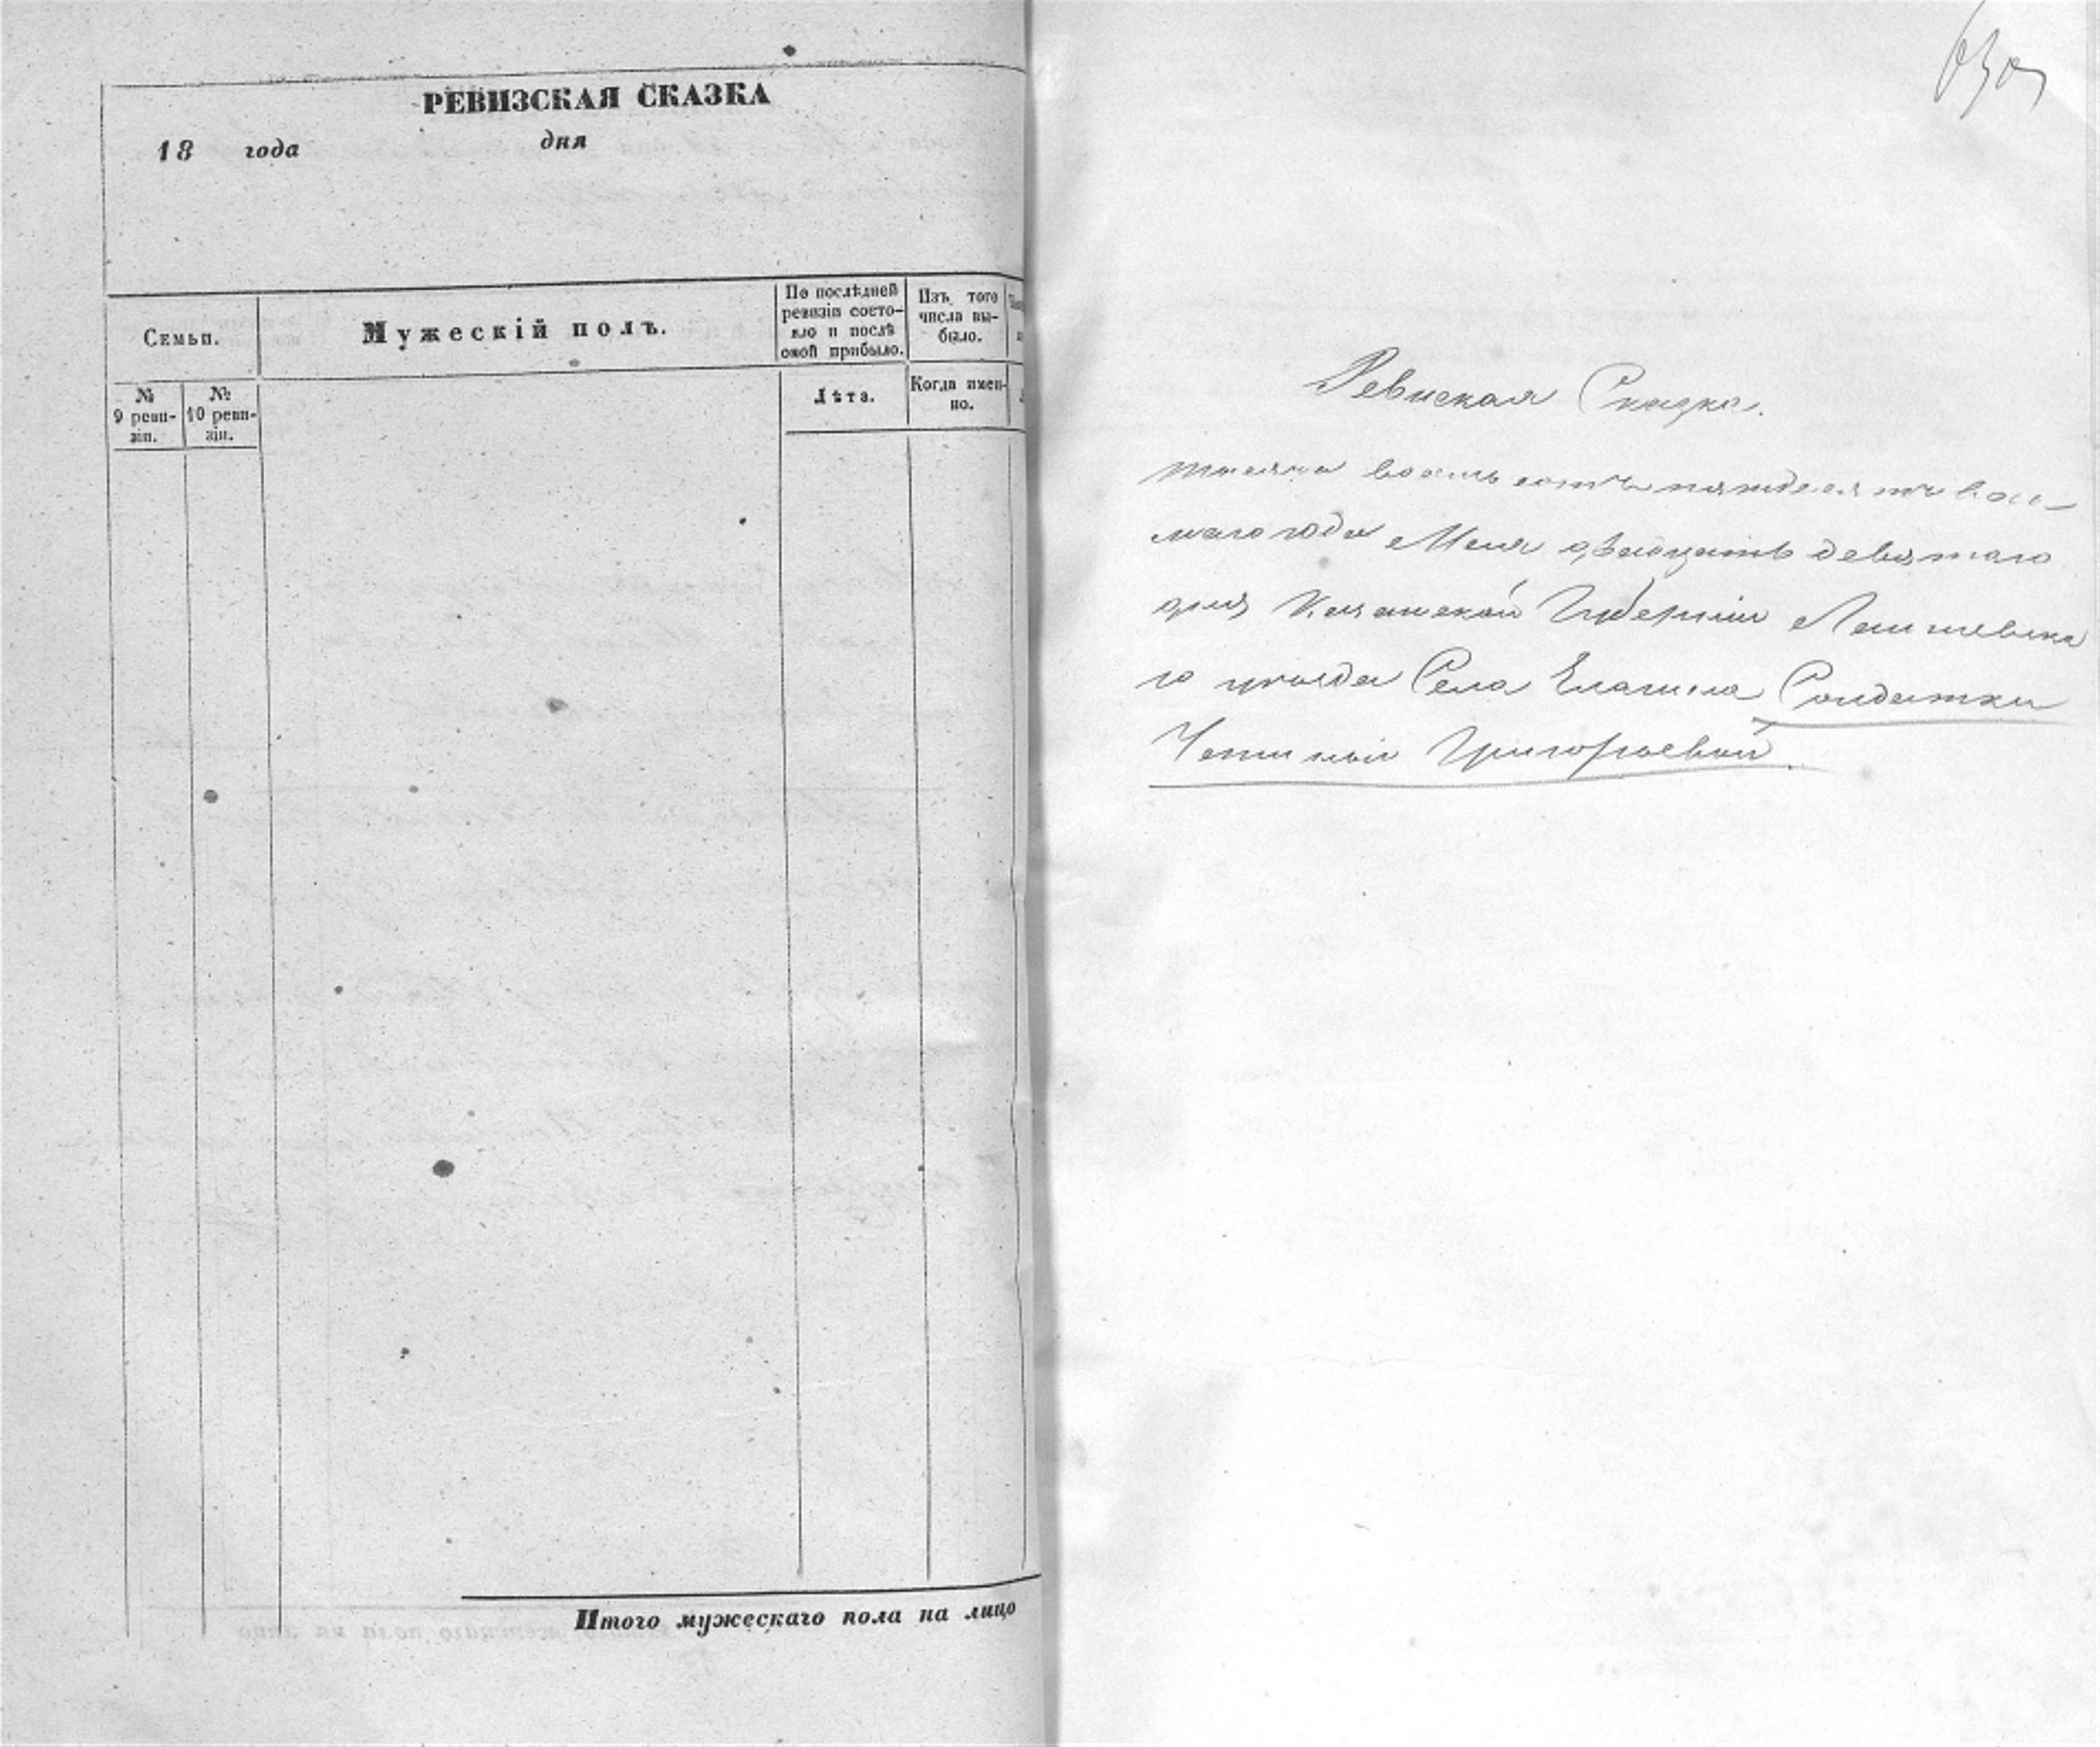 РЕВИЗСКАЯ СКАЗКА
18 года дня
Семьи.
Мужескій полъ.
По послѣдней
ревизіи состо-
яло и послѣ
оной прибыло.
Изъ того
числа вы-
было.
№
9 реви-
зіи.
№
10 реви-
зіи.
Лѣта.
Когда имен-
но.
Итого мужескаго пола на лицо
Ревиская Сказка.
тысяча восемь сотъ пятдесятъ вось-
маго года Мая двадцать девятаго
дня Казанской Губерніи Лаишевска
го уезда Села Елагина Солдатки
Григорьевой.